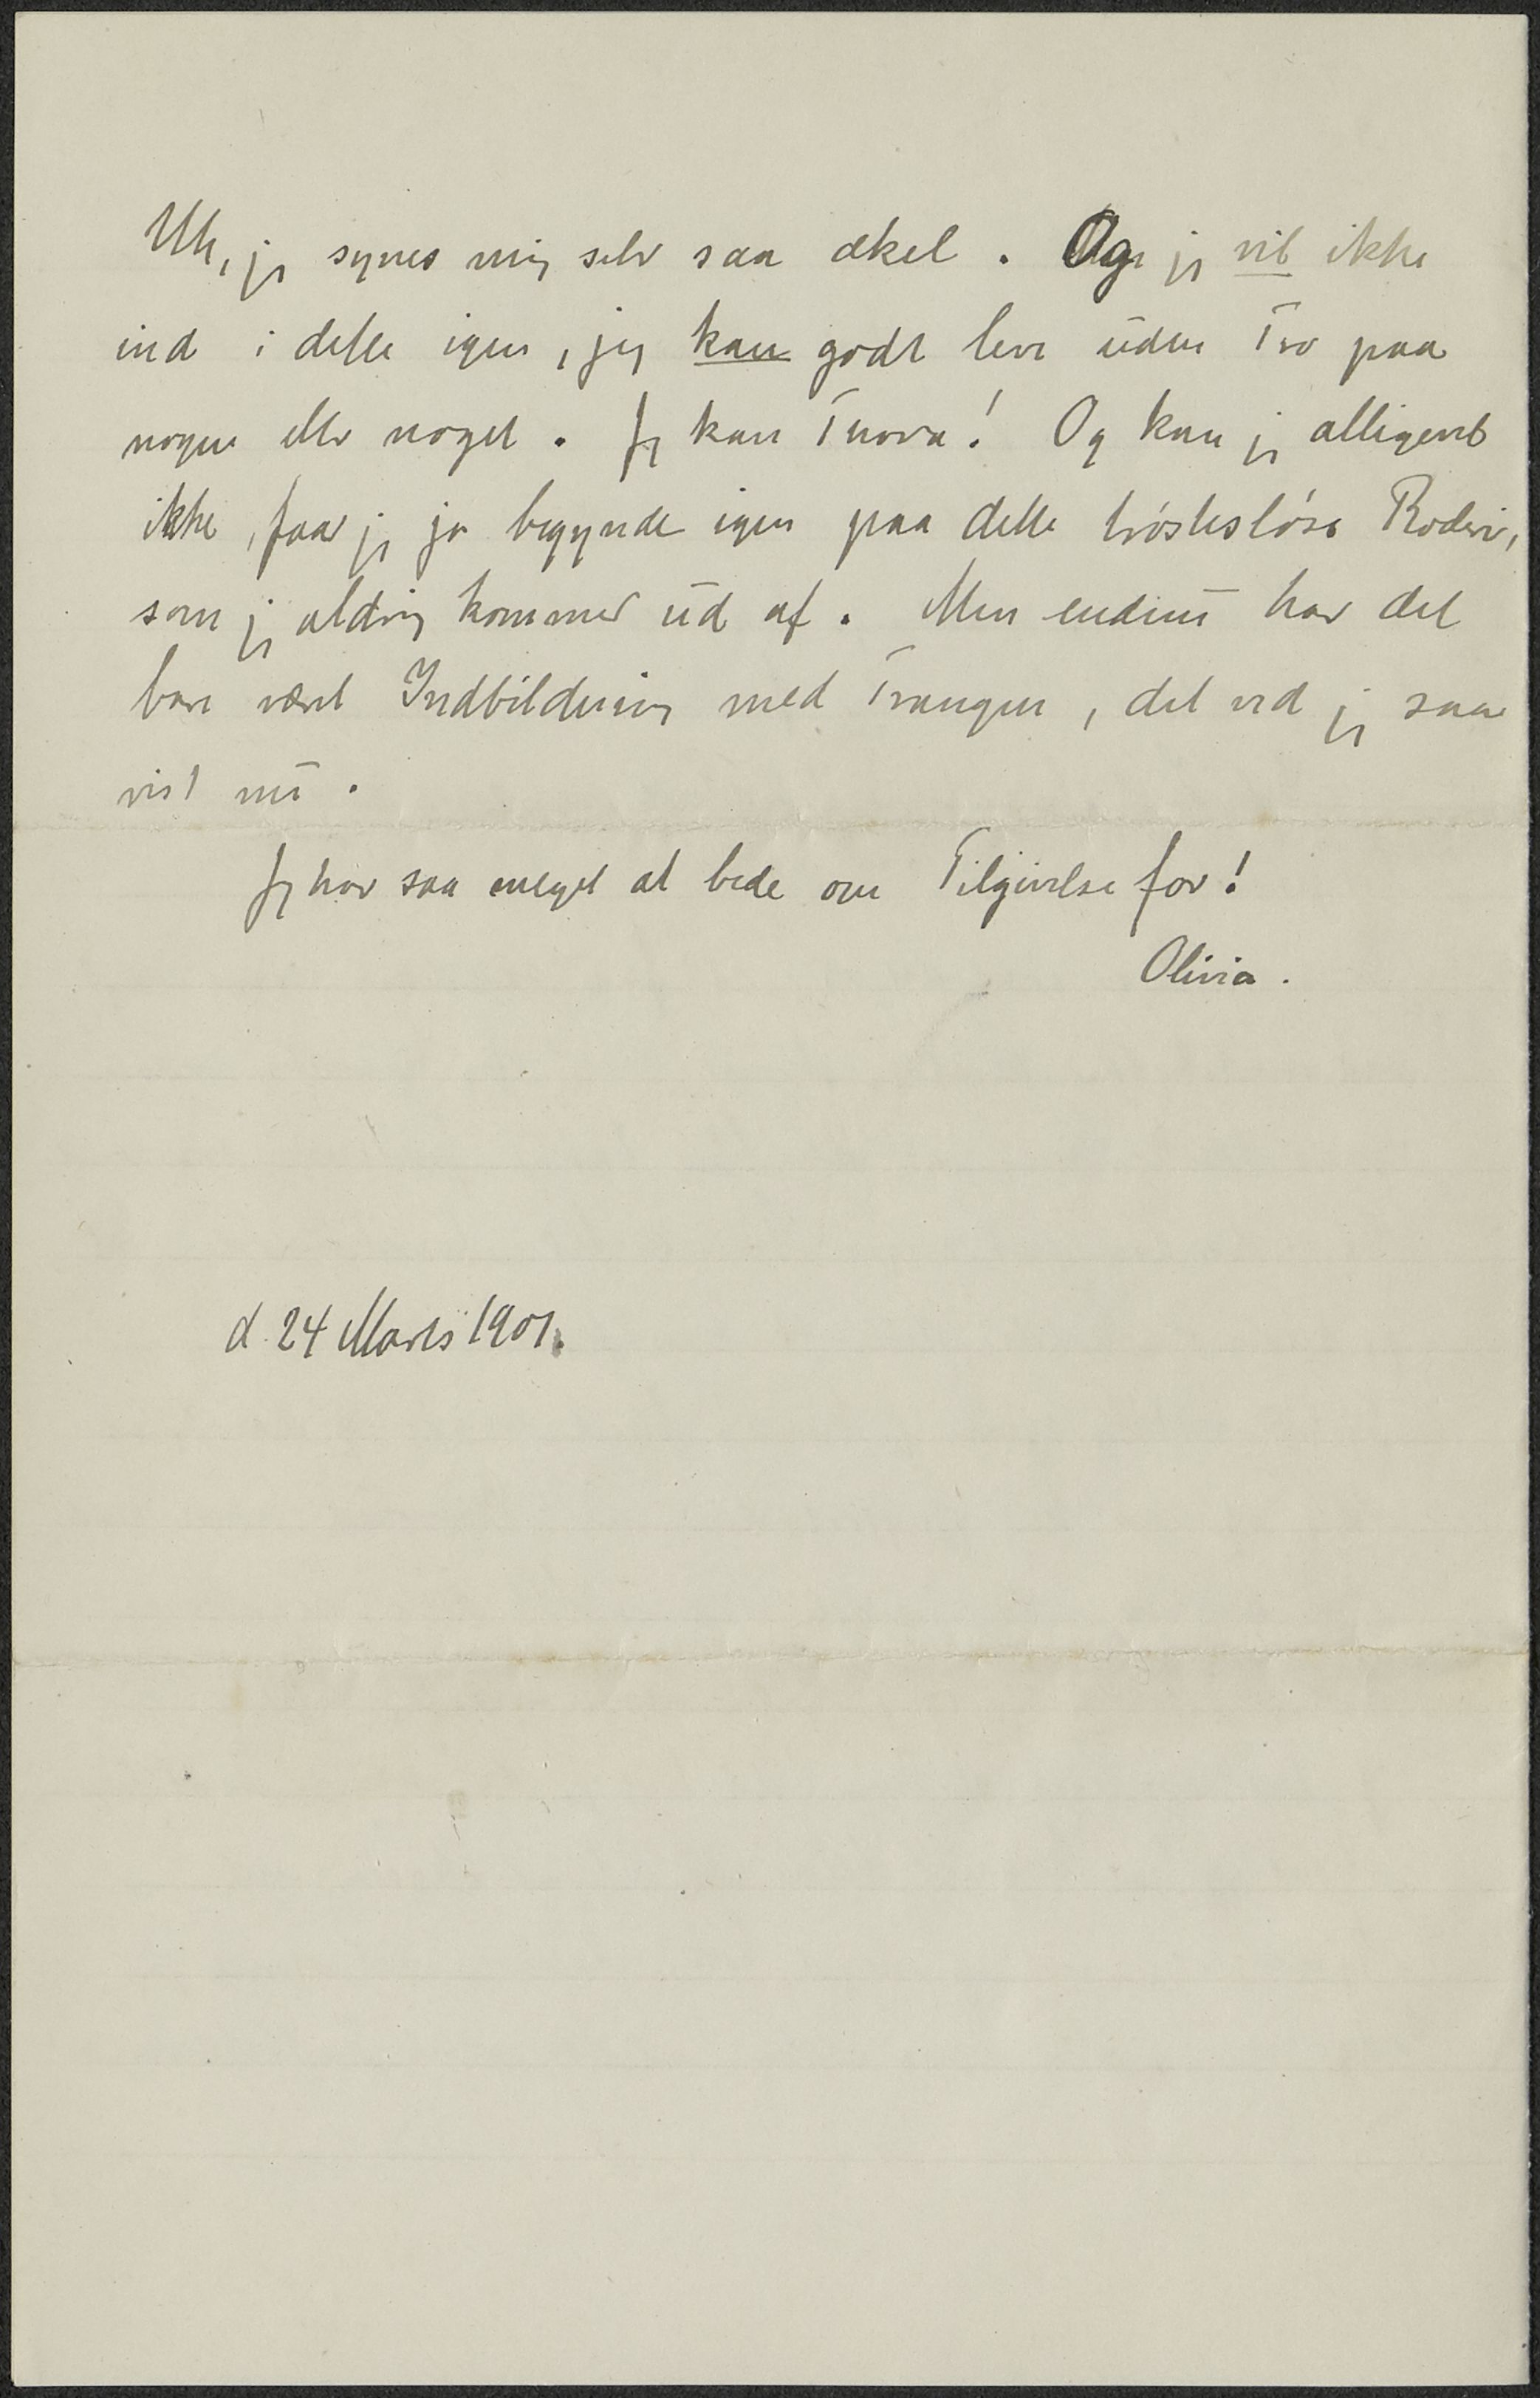 Uh, jeg synes mig selv saa ækel. Og jeg vil ikke
ind i dette igen, jeg kan godt leve uden Tro paa
nogen eller noget. Jeg kan Tnova! Og kan jeg alligevel
ikke, faar jeg jo begynde igen paa dette trøstesløse Roderi,
som jeg aldrig kommer ud af. Men endnu har det
bare været Indbildning med Trangen, det ved jeg saa
vist nu.
Jeg har saa meget at bede om Tilgivelse for!
Olivia.
d. 24 Marts 1901.